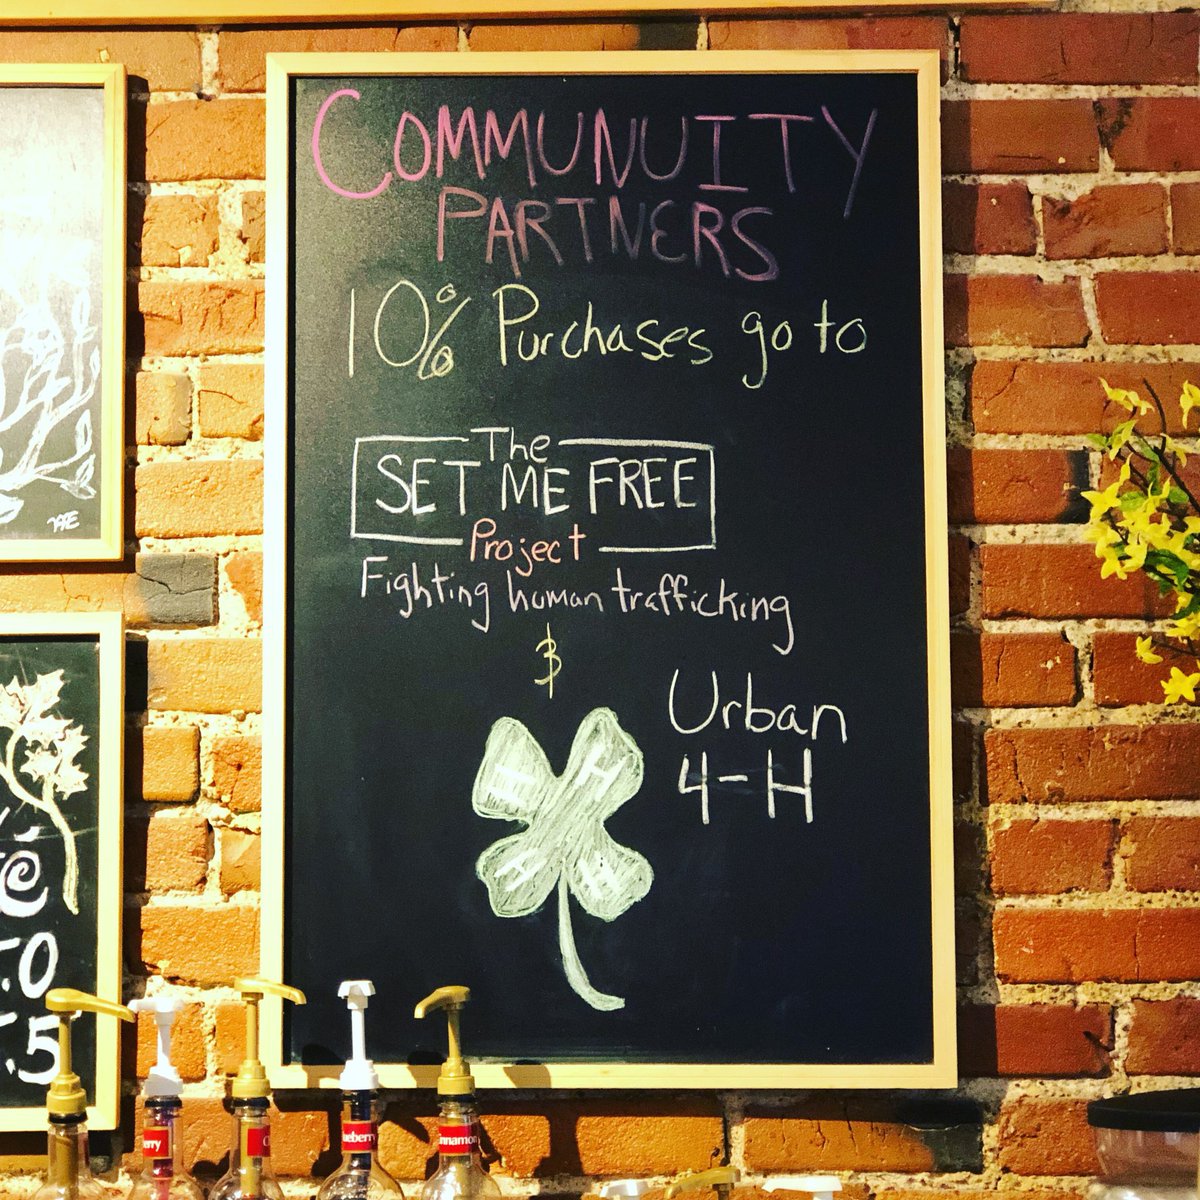 COMMUNUITY
PARTNERS
10% Purchases go to
The
SET ME FREE
Project
Fighting human trafficking
&
Urban
4-H
H H
H H
.0
.5
erry
ueberry
innamon